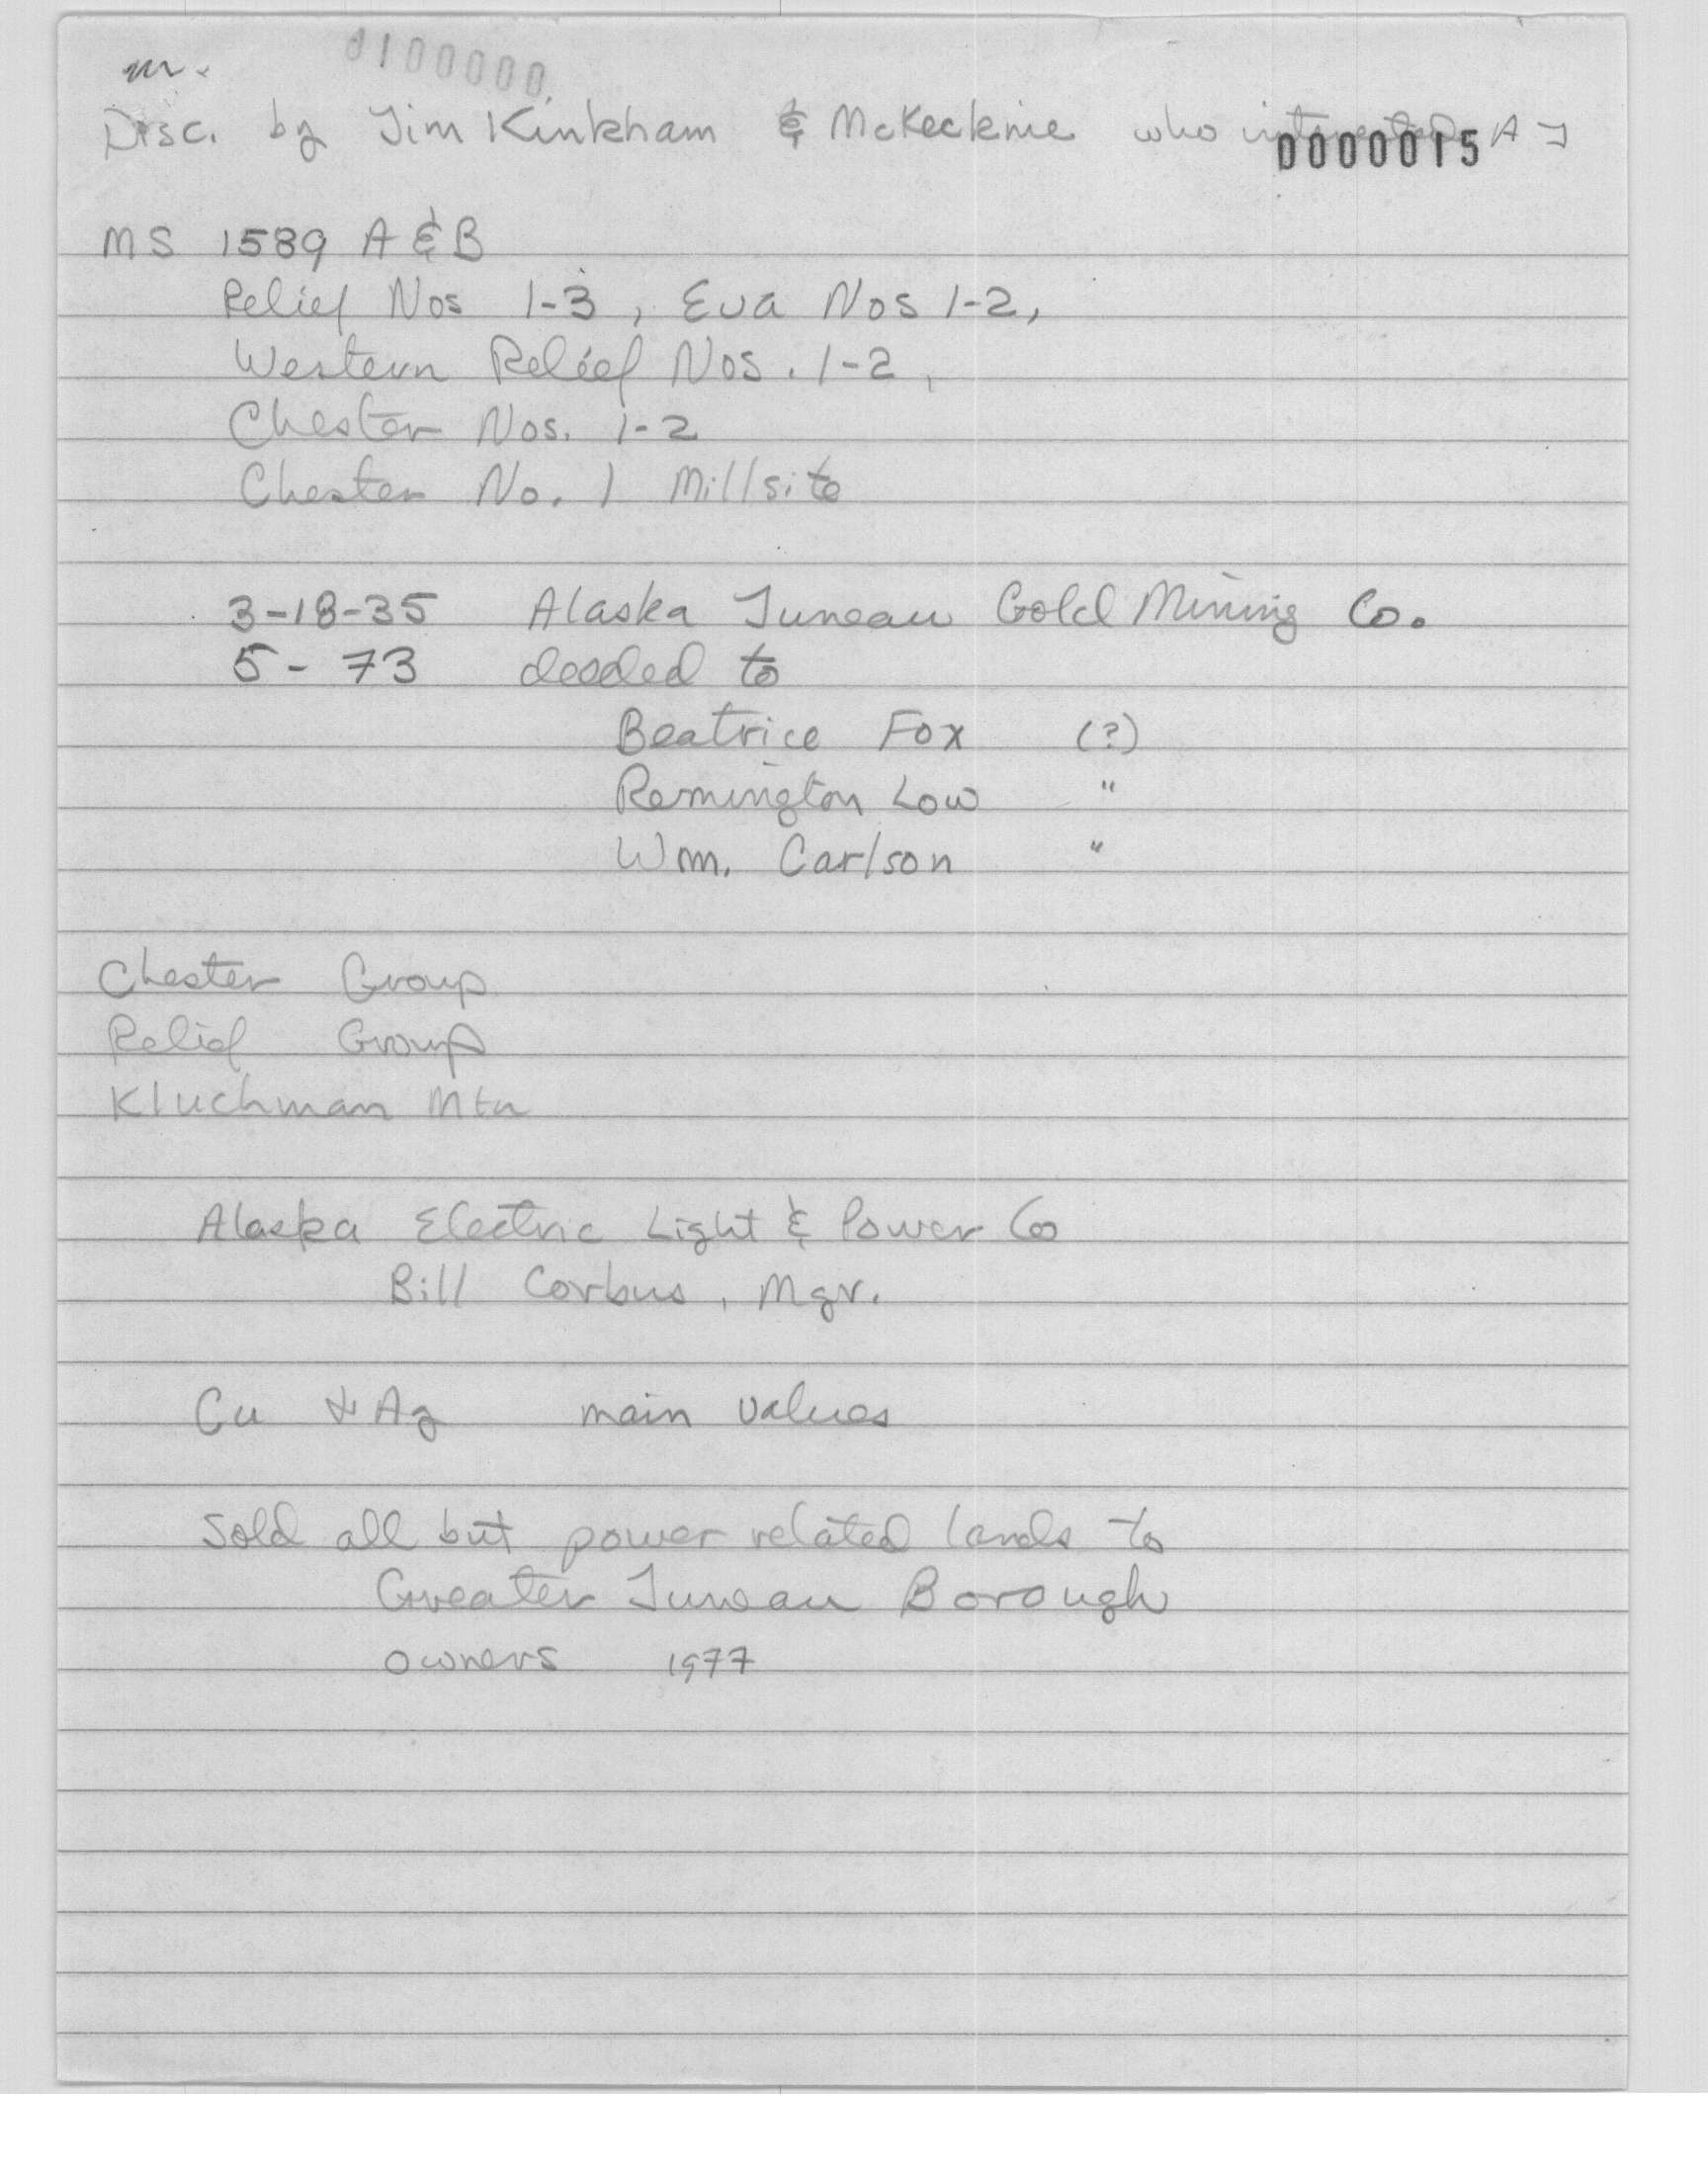 m.
0100000
Disc. by Jim Kinkham & McKecknie who interested AJ
0000015
MS 1589 A & B
Relief Nos 1-3, Eva Nos 1-2,
Western Relief Nos. 1-2,
Chester Nos. 1-2
Chester No. 1 Millsite
3-18-35 Alaska Juneau Gold Mining Co.
5-73 deeded to
Beatrice Fox (?)
Remington Low "
Wm. Carlson "
Chester Group
Relief Group
Kluchman Mtn
Alaska Electric Light & Power Co
Bill Corbus, Mgr.
Cu & Ag main values
Sold all but power related lands to
Greater Juneau Borough
owners 1977